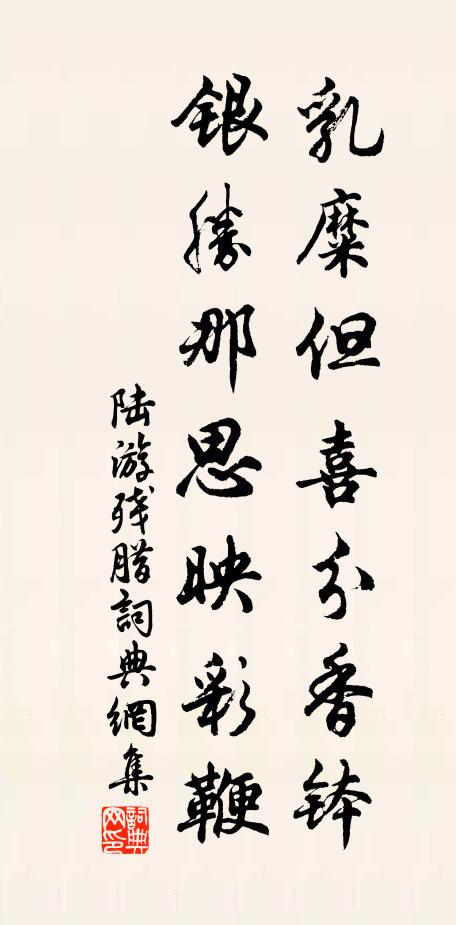 乳糜但喜分香钵
银勝那思映彩鞭
陆游残腊詞典網集
詞典网印